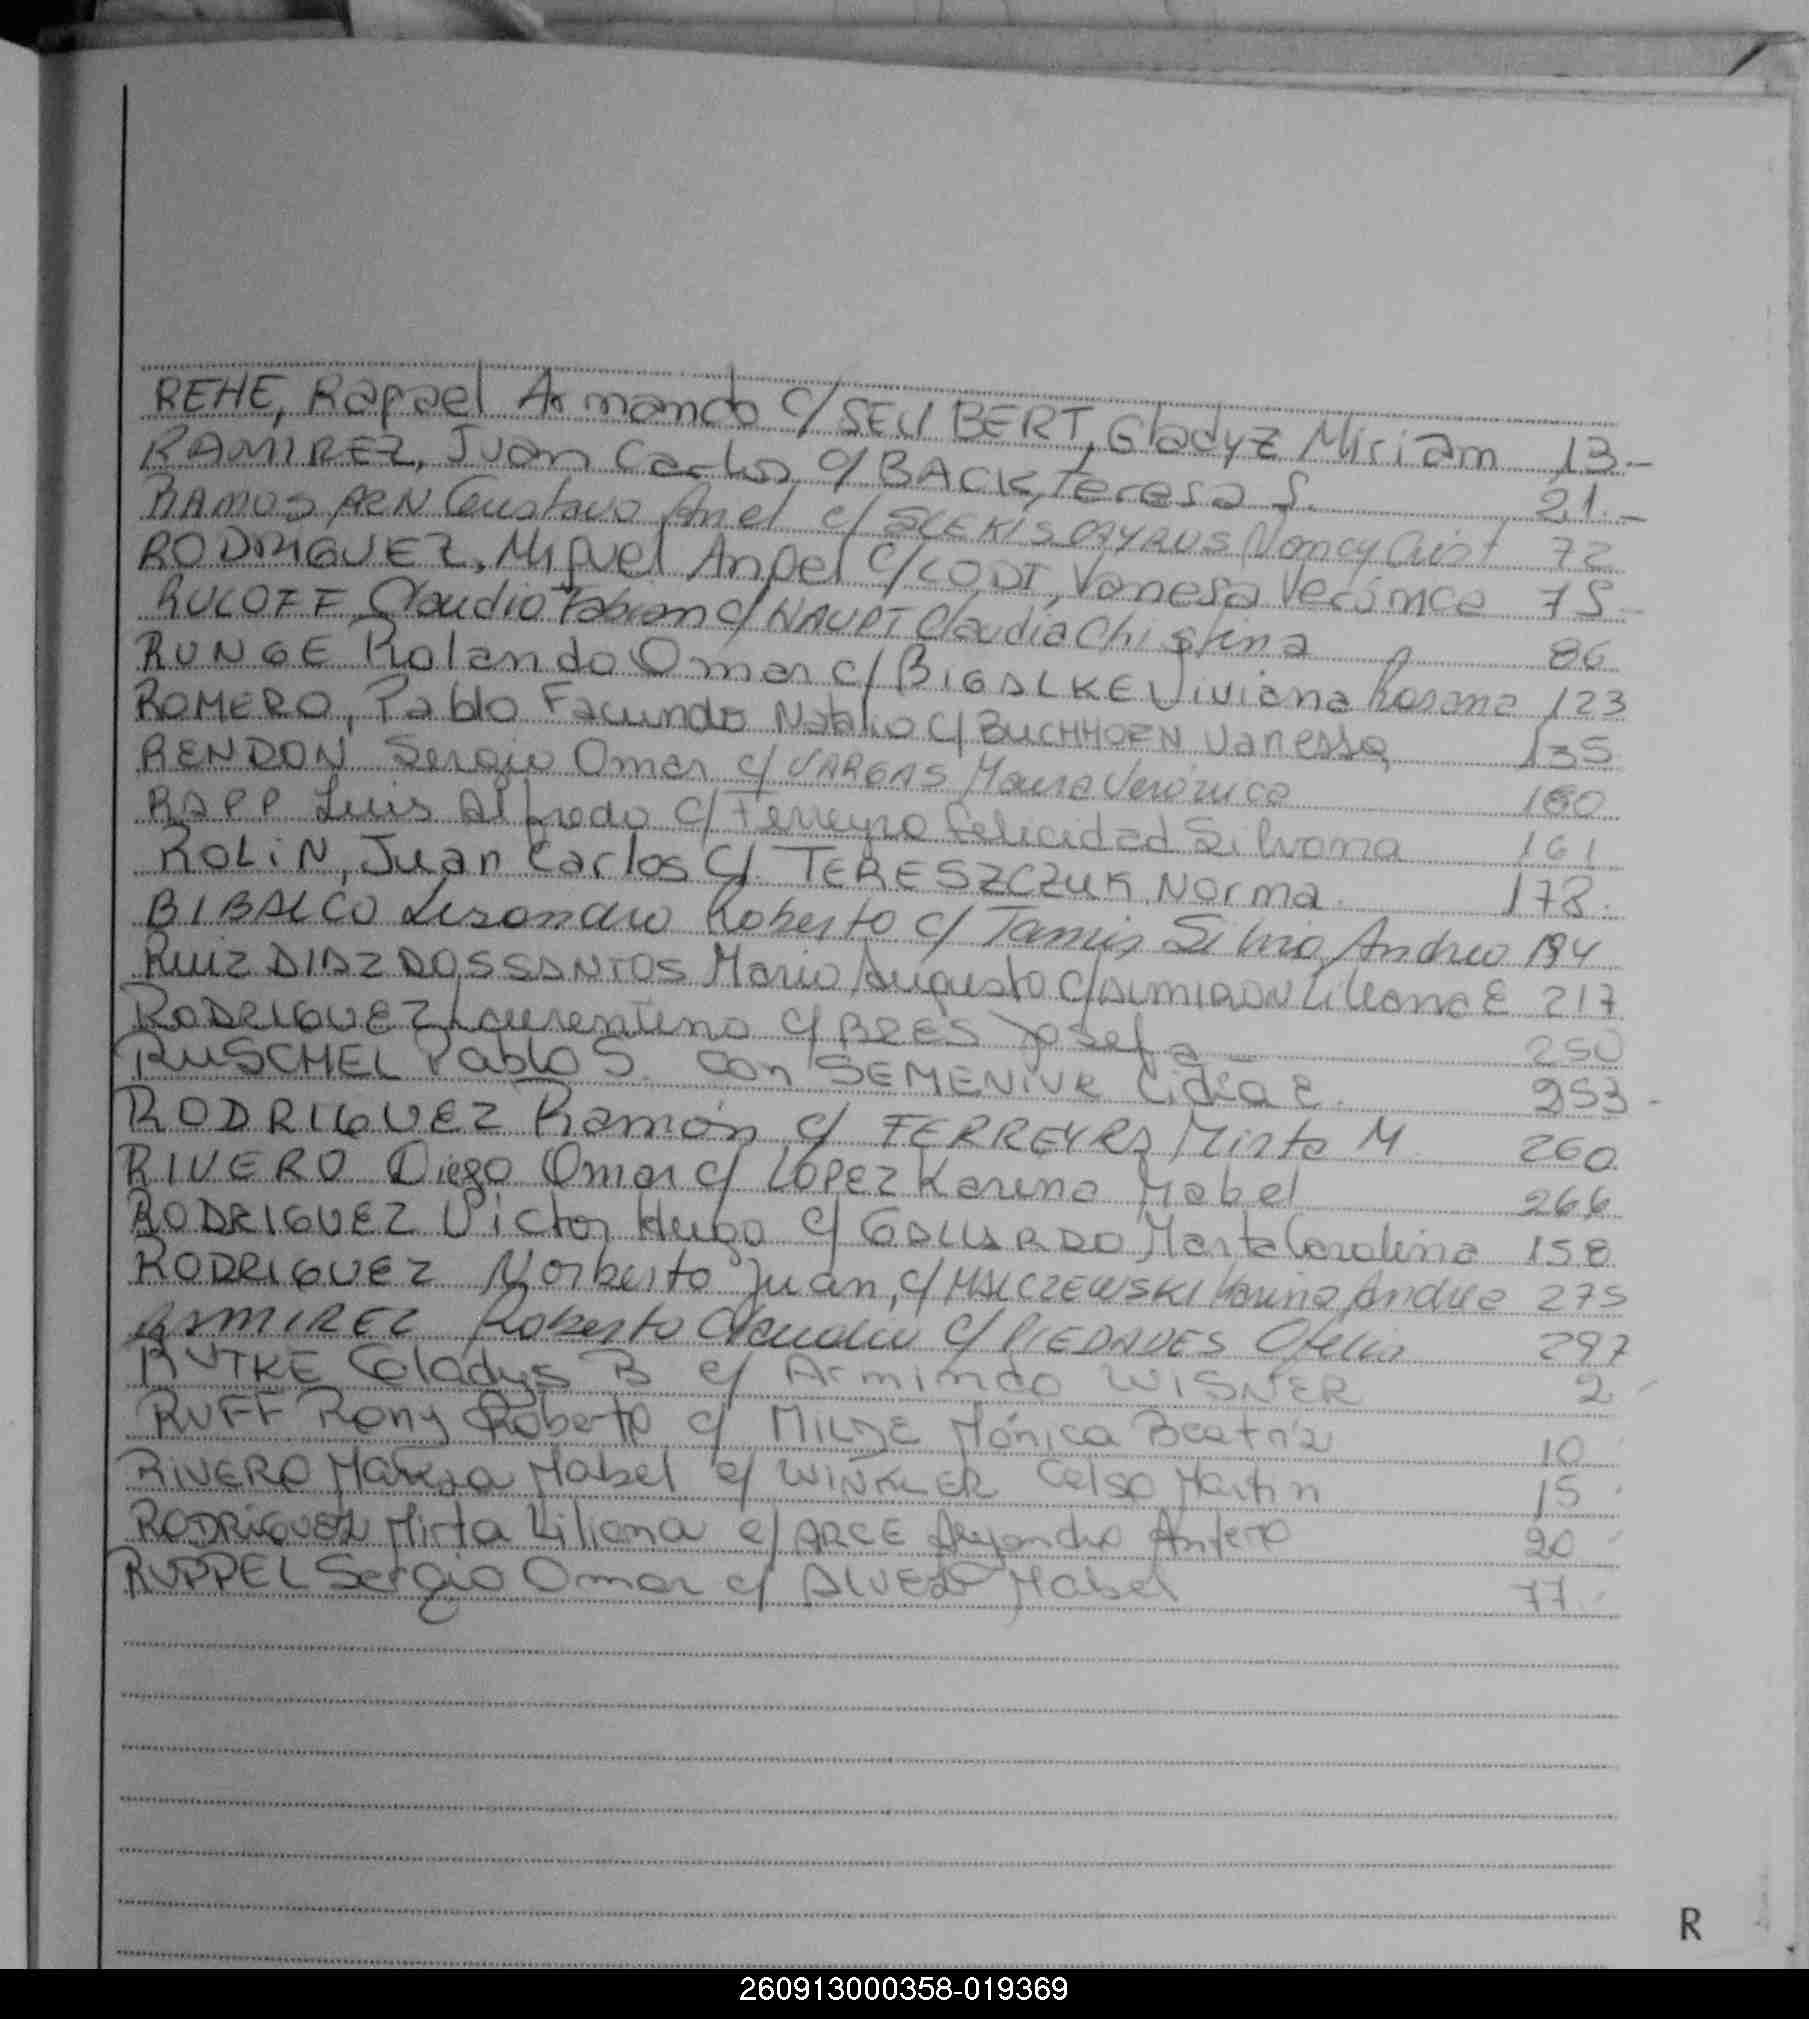 REHE, Rafael Armando c/ SEUBERT, Gladyz Miriam 13.-
RAMIREZ, Juan Carlos c/ BACK, Teresa S. 21.-
RAMOS Gustavo Ariel c/ Nancy Crist 72
RODRIGUEZ, Miguel Angel c/ LODI, Vanesa Verónica 75-
RULOFF Claudio Fabian c/ HAUPT Claudia Christina 86
RUNGE Rolando Omar c/ BIGALKE Viviana Rosana 123
ROMERO, Pablo Facundo Natalio c/ BUCHHORN Vanessa 135
RENDON Sergio Omar c/ VARGAS Verónica 160
RAPP Luis Alfredo c/ Ferreyra Felicidad Silvana 161
ROLiN, Juan Carlos c/. TERESZCZUK, Norma. 178.
Roberto c/ Silvia Andrea 194
RUIZ DIAZ DOS SANTOS Mario Augusto c/ ALMIRON Liliana E 217
RODRIGUEZ Laurentino c/ BRES Josefa - 250
RUSCHEL Pablo S. con SEMENIUK Lidia E. 253-
RODRIGUEZ Ramón c/ FERREYRA Mirta M. 260
RIVERO Diego Omar c/ LOPEZ Karina Mabel 266
RODRIGUEZ Victor Hugo c/ GALLARDO Marta Carolina 158
RODRIGUEZ Norberto Juan, c/ MALCZEWSKI Karina Andrea 275
RAMIREZ Roberto Claudio c/ PIEDADES Ofelia 297
RUTKE Gladys B c/ Armindo WISNER 2.-
RUFF Rony Roberto c/ MILDE Mónica Beatriz 10
RIVERO Mabel c/ WINKLER Celso Martin 15
RODRIGUEZ Mirta Liliana c/ ARCE Alejandro 20
RUPPEL Sergio Omar c/ Mabel 77
R
260913000358-019369